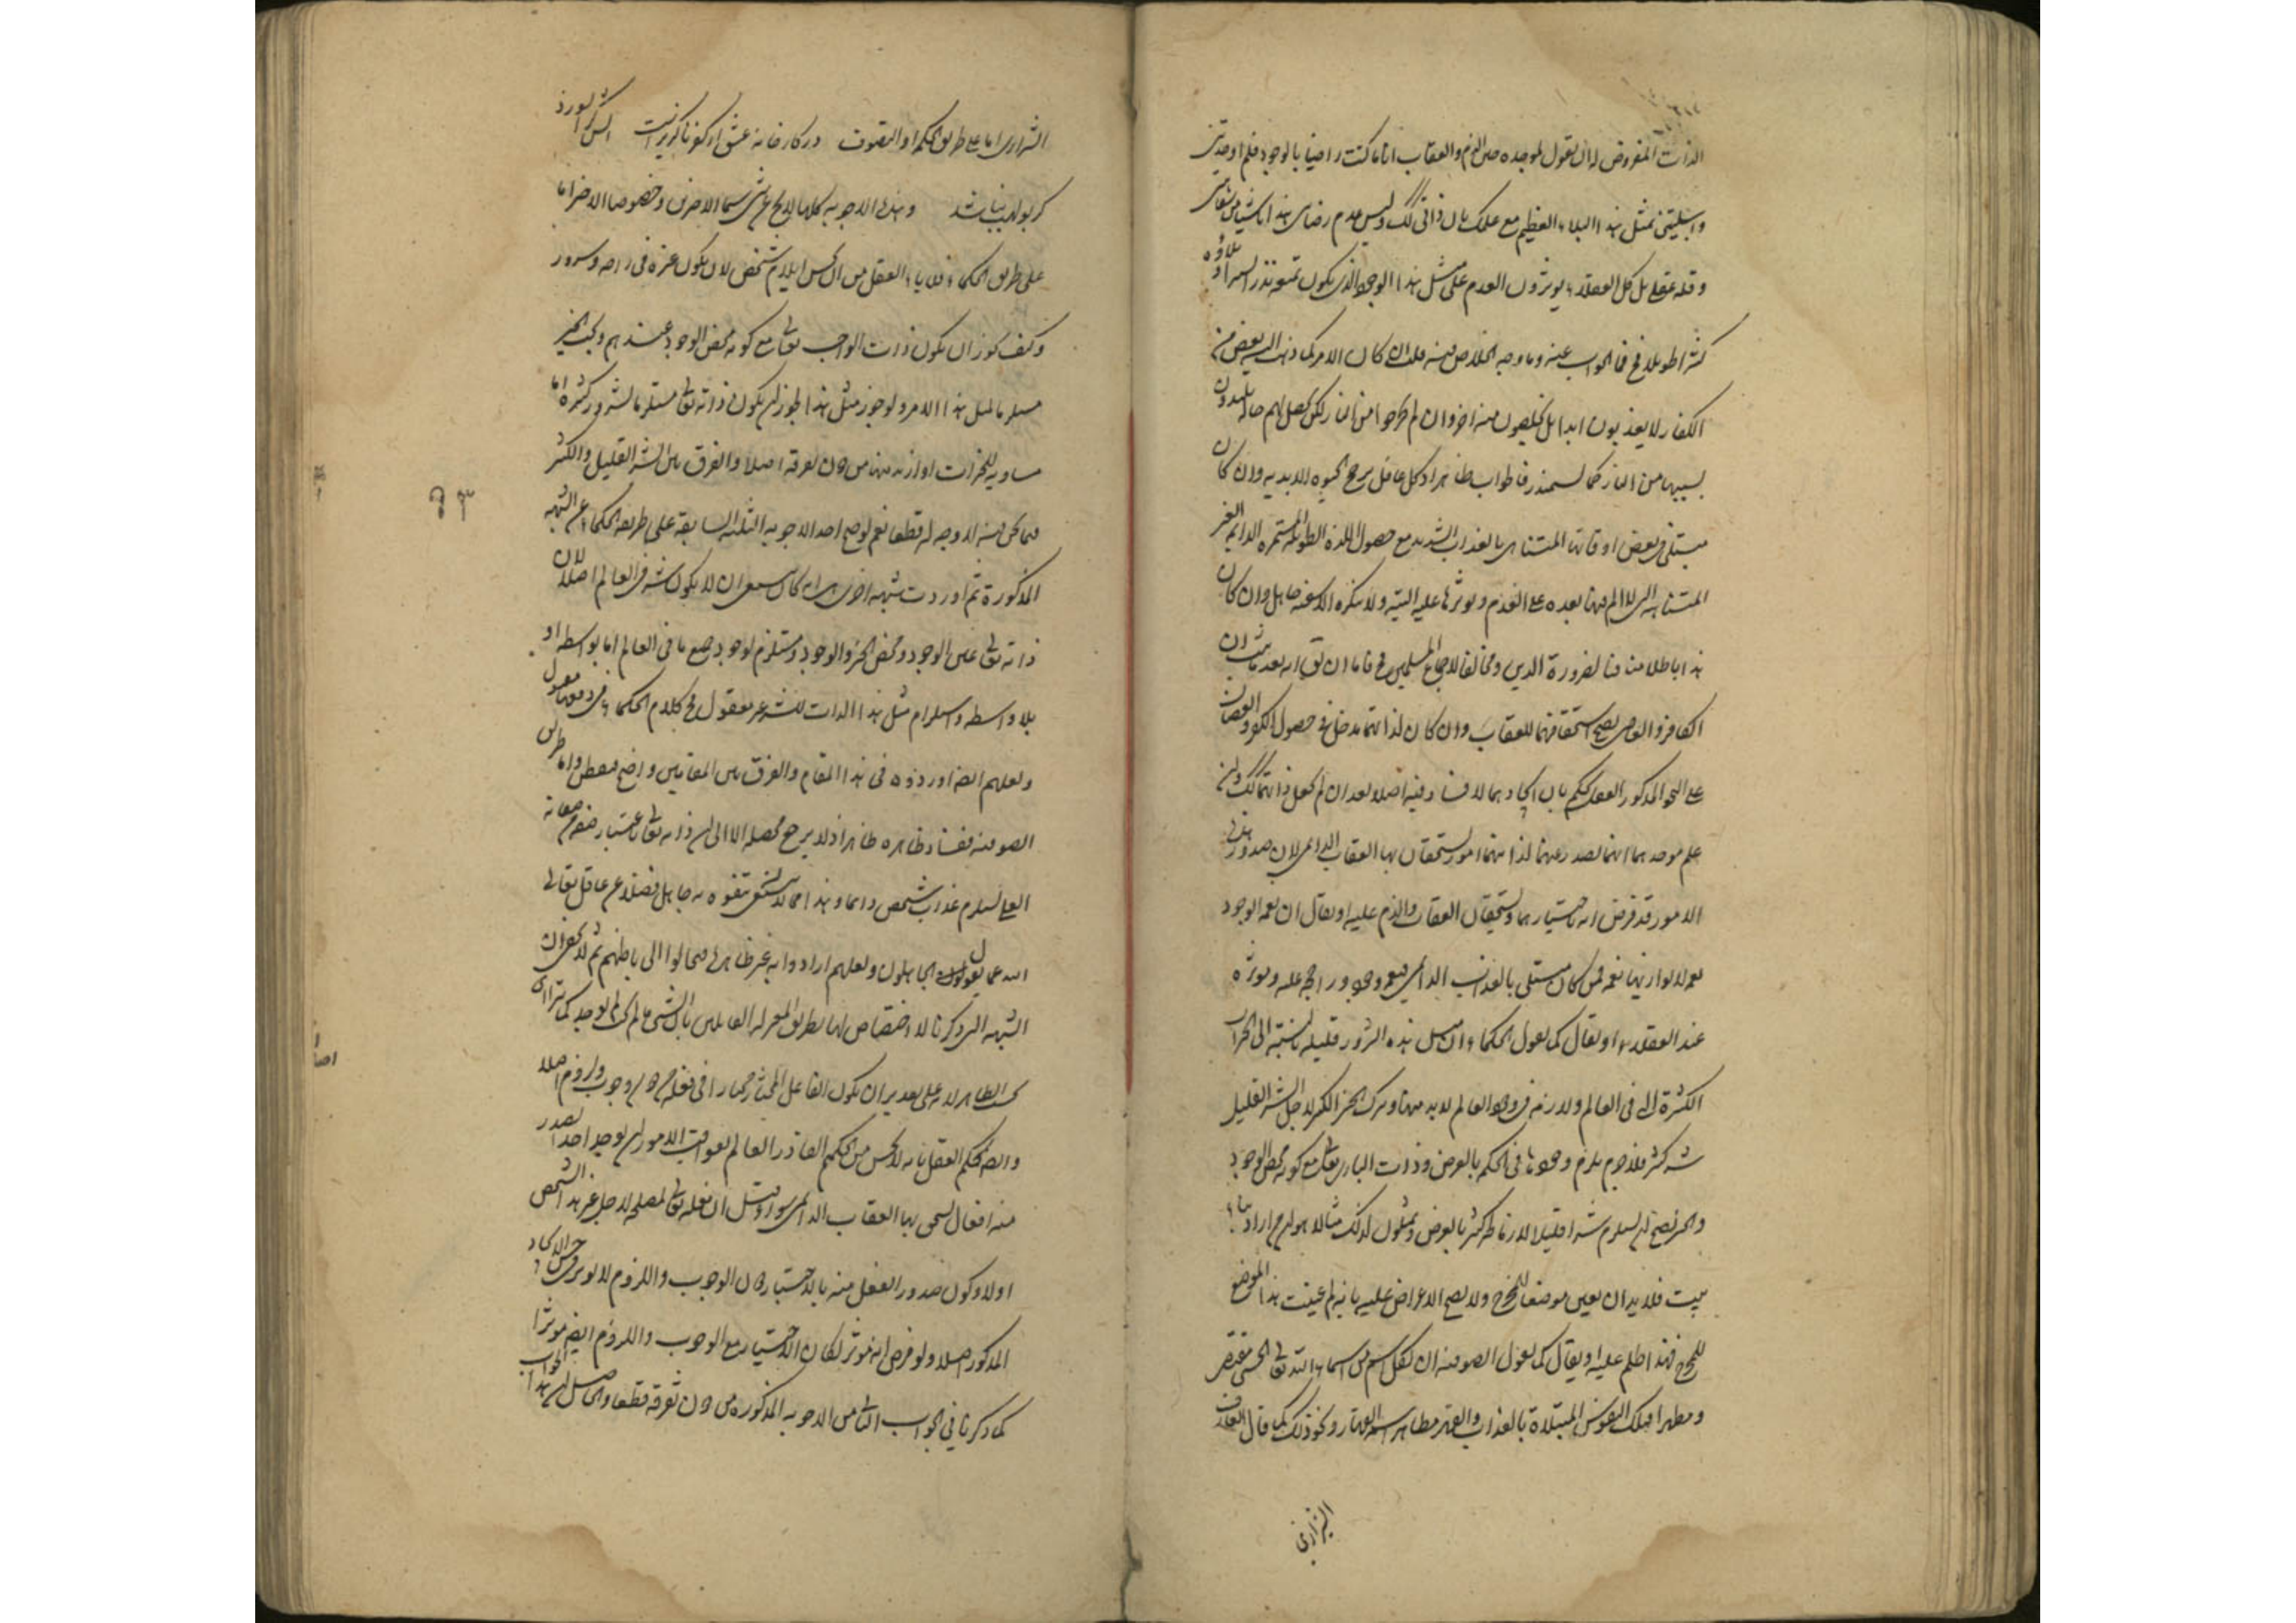 الذات المفروض له ان يقول لموجده حين الذم والعقاب انا ما كنت راضيا بالوجود فلم اوجدتنى
وابتليتنى بمثل هذا البلاء العظيم مع علمك بان ذاتى كذلك وليس عدم رضاى هذا ناشيا من
وقلة عقلى بل كل العقلاء يؤثرون العدم على مثل هذا الوجود الذى يكون
فما الجواب عنه وما وجه الخلاص منه قلت ان كان الامر كما ذهب اليه بعض من
الكفار لا يعذبون ابدا بل يخلصون منه اخرا وان لم يخرجوا من النار لكن يحصل لهم حالة يلتذون
بسببها من النار كالسمندر فالجواب ظاهر اذ كل عاقل يرجح الحيوة الابدية وان كان
مبتلى فى بعض اوقاتها المتناهى بالعذاب الشديد مع حصول اللذة الطويلة المستمرة الدايمة الغير
المتناهية التى لا الم فيها بعده على العدم ويوثرها عليه البتة ولا ينكره الا سفيه جاهل وان كان
هذا باطلا منافيا لضرورة الدين ومخالفا لاجماع المسلمين فاما ان يقال انه بعد ما ثبت ان
الكافر والعاصى يصح استحقاقهما للعقاب وان كان لذاتهما مدخل فى حصول الكفر والعصيان
على النحو المذكور العقل يحكم بان ايجادهما لا فساد فيه اصلا بعد ان لم يجعل ذاتهما كذلك وان
علم موجدهما انهما يصدر عنهما لذاتهما امور يستحقان بها العقاب الدايمى لان صدور هذه
الامور قد فرض انه باختيارهما ويستحقان العقاب والذم عليه او يقال ان نعمة الوجود
نعمة لا يوازيها نعمة فمن كان مبتلى بالعذاب الدايمى فنعمة وجوده راجح عليه ويؤثره
عند العقلاء او يقال كما يقول الحكماء ان مثل هذه الشرور قليلة بالنسبة الى الخيرات
الكثيرة التى فى العالم ولازمة فى وجود العالم لا بد منها وترك الخير الكثير لاجل الشر القليل
شر كثير فلا جرم يلزم وجودها فى الحكمة بالعرض وذات البارى تعالى مع كونه محض الوجود
والخير يصح ان يستلزم شرا قليلا لازما لخير كثير بالعرض ويمثلون لذلك مثالا هو ان من اراد بناء
بيت فلا بد ان يعين موضعا للمخرج ولا يصح الاعتراض عليه بانه لم عينت هذا الموضع
للمخرج فهذا ظلم عليه او يقال كما يقول الصوفية ان لكل اسم من اسماء الله تعالى الحسنى مقتضى
ومظهرا فتلك النفوس المبتلاة بالعذاب والقهر مظاهر اسمه القهار ونحو ذلك كما قال العارف
الشيرازى
الشيرازى اما على طريق الحكماء او التصوف در كارخانه عشق از كفر ناگزير است آتش كرا بسوزد
گر بو لهب نباشد وهذه الاجوبة كلها لا يخلو عن شى سيما الاخرين وخصوصا الاخر اما
على طريق الحكماء فلاباء العقل من ان يحسن ايلام شخص لان يكون غيره فى راحة وسرور
وكيف يجوز ان يكون ذات الواجب تعالى مع كونه محض الوجود عندهم وبحت الخير
مستلزما لمثل هذا الامر ولو جوز مثل هذا لجوز ان يكون ذاته تعالى مستلزما لشرور كثيرة اما
مساوية للخيرات او ازيد منها من دون تفرقة اصلا والفرق بين الشر القليل والكثير
فيما نحن فيه لا وجه له قطعا نعم لو صح احد الاجوبة الثلثة السابقة على طريقة الحكماء عن الشبهة
المذكورة ثم اوردت شبهة اخرى هى انه كان ينبغى ان لا يكون شر فى العالم اصلا لان
ذاته تعالى عين الوجود ومحض الخير والوجود ومستلزم لوجود جميع ما فى العالم اما بواسطة او
بلا واسطة واستلزام مثل هذا الذات للشر غير معقول فكلام الحكماء فى دفعها معقول
ولعلهم ايضا اوردوه فى هذا المقام والفرق بين المقامين واضح فتفطن واما طريق
الصوفية ففساده ظاهر ظاهرا اذ لا يرجع محصله الا الى ان ذاته تعالى باعتبار بعض صفاته
العلى يستلزم عذاب شخص دائما وهذا مما لا يتفوه به جاهل فضلا عن عاقل تعالى
الله عما يقول الجاهلون ولعلهم ارادوا به غير ظاهره فحالوا الى باطنهم ثم لا يخفى ان
الشبهة التى ذكرنا لا اختصاص لها بطريق المعتزلة القائلين بان الشى ما لم يجب لم يوجد كما يتراءى
بحسب الظاهر لانه على تقدير ان يكون الفاعل المختار مختارا فى فعله من دون وجوب ولزوم اصلا
وايضا يحكم العقل بانه لا يحسن من الحكيم القادر العالم بعواقب الامور ان يوجد احدا يصدر
منه افعال يستحق بها العقاب الدايمى سواء قيل ان فعله تعالى لمصلحة لاجل غير هذا الشخص
او لا وكون صدور الفعل منه بالاختيار دون الوجوب واللزوم لا يؤثر فى حسن الايجاد
المذكور اصلا ولو فرض انه مؤثر لكان الاختيار مع الوجوب واللزوم ايضا مؤثرا
كما ذكرنا فى الجواب الثانى من الاجوبة المذكورة من دون تفرقة قطعا والحاصل ان هذا الجواب